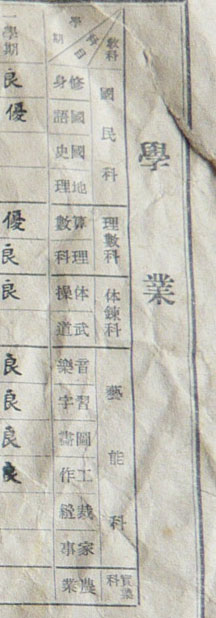 學業
教科
科目
學期
國民科
修身
國語
國史
地理
理數科
算數
理科
体鍊科
体操
武道
藝能科
音樂
習字
圖畫
工作
裁縫
家事
實業科
農業
一學期
良
優
優
良
良
良
良
良
良